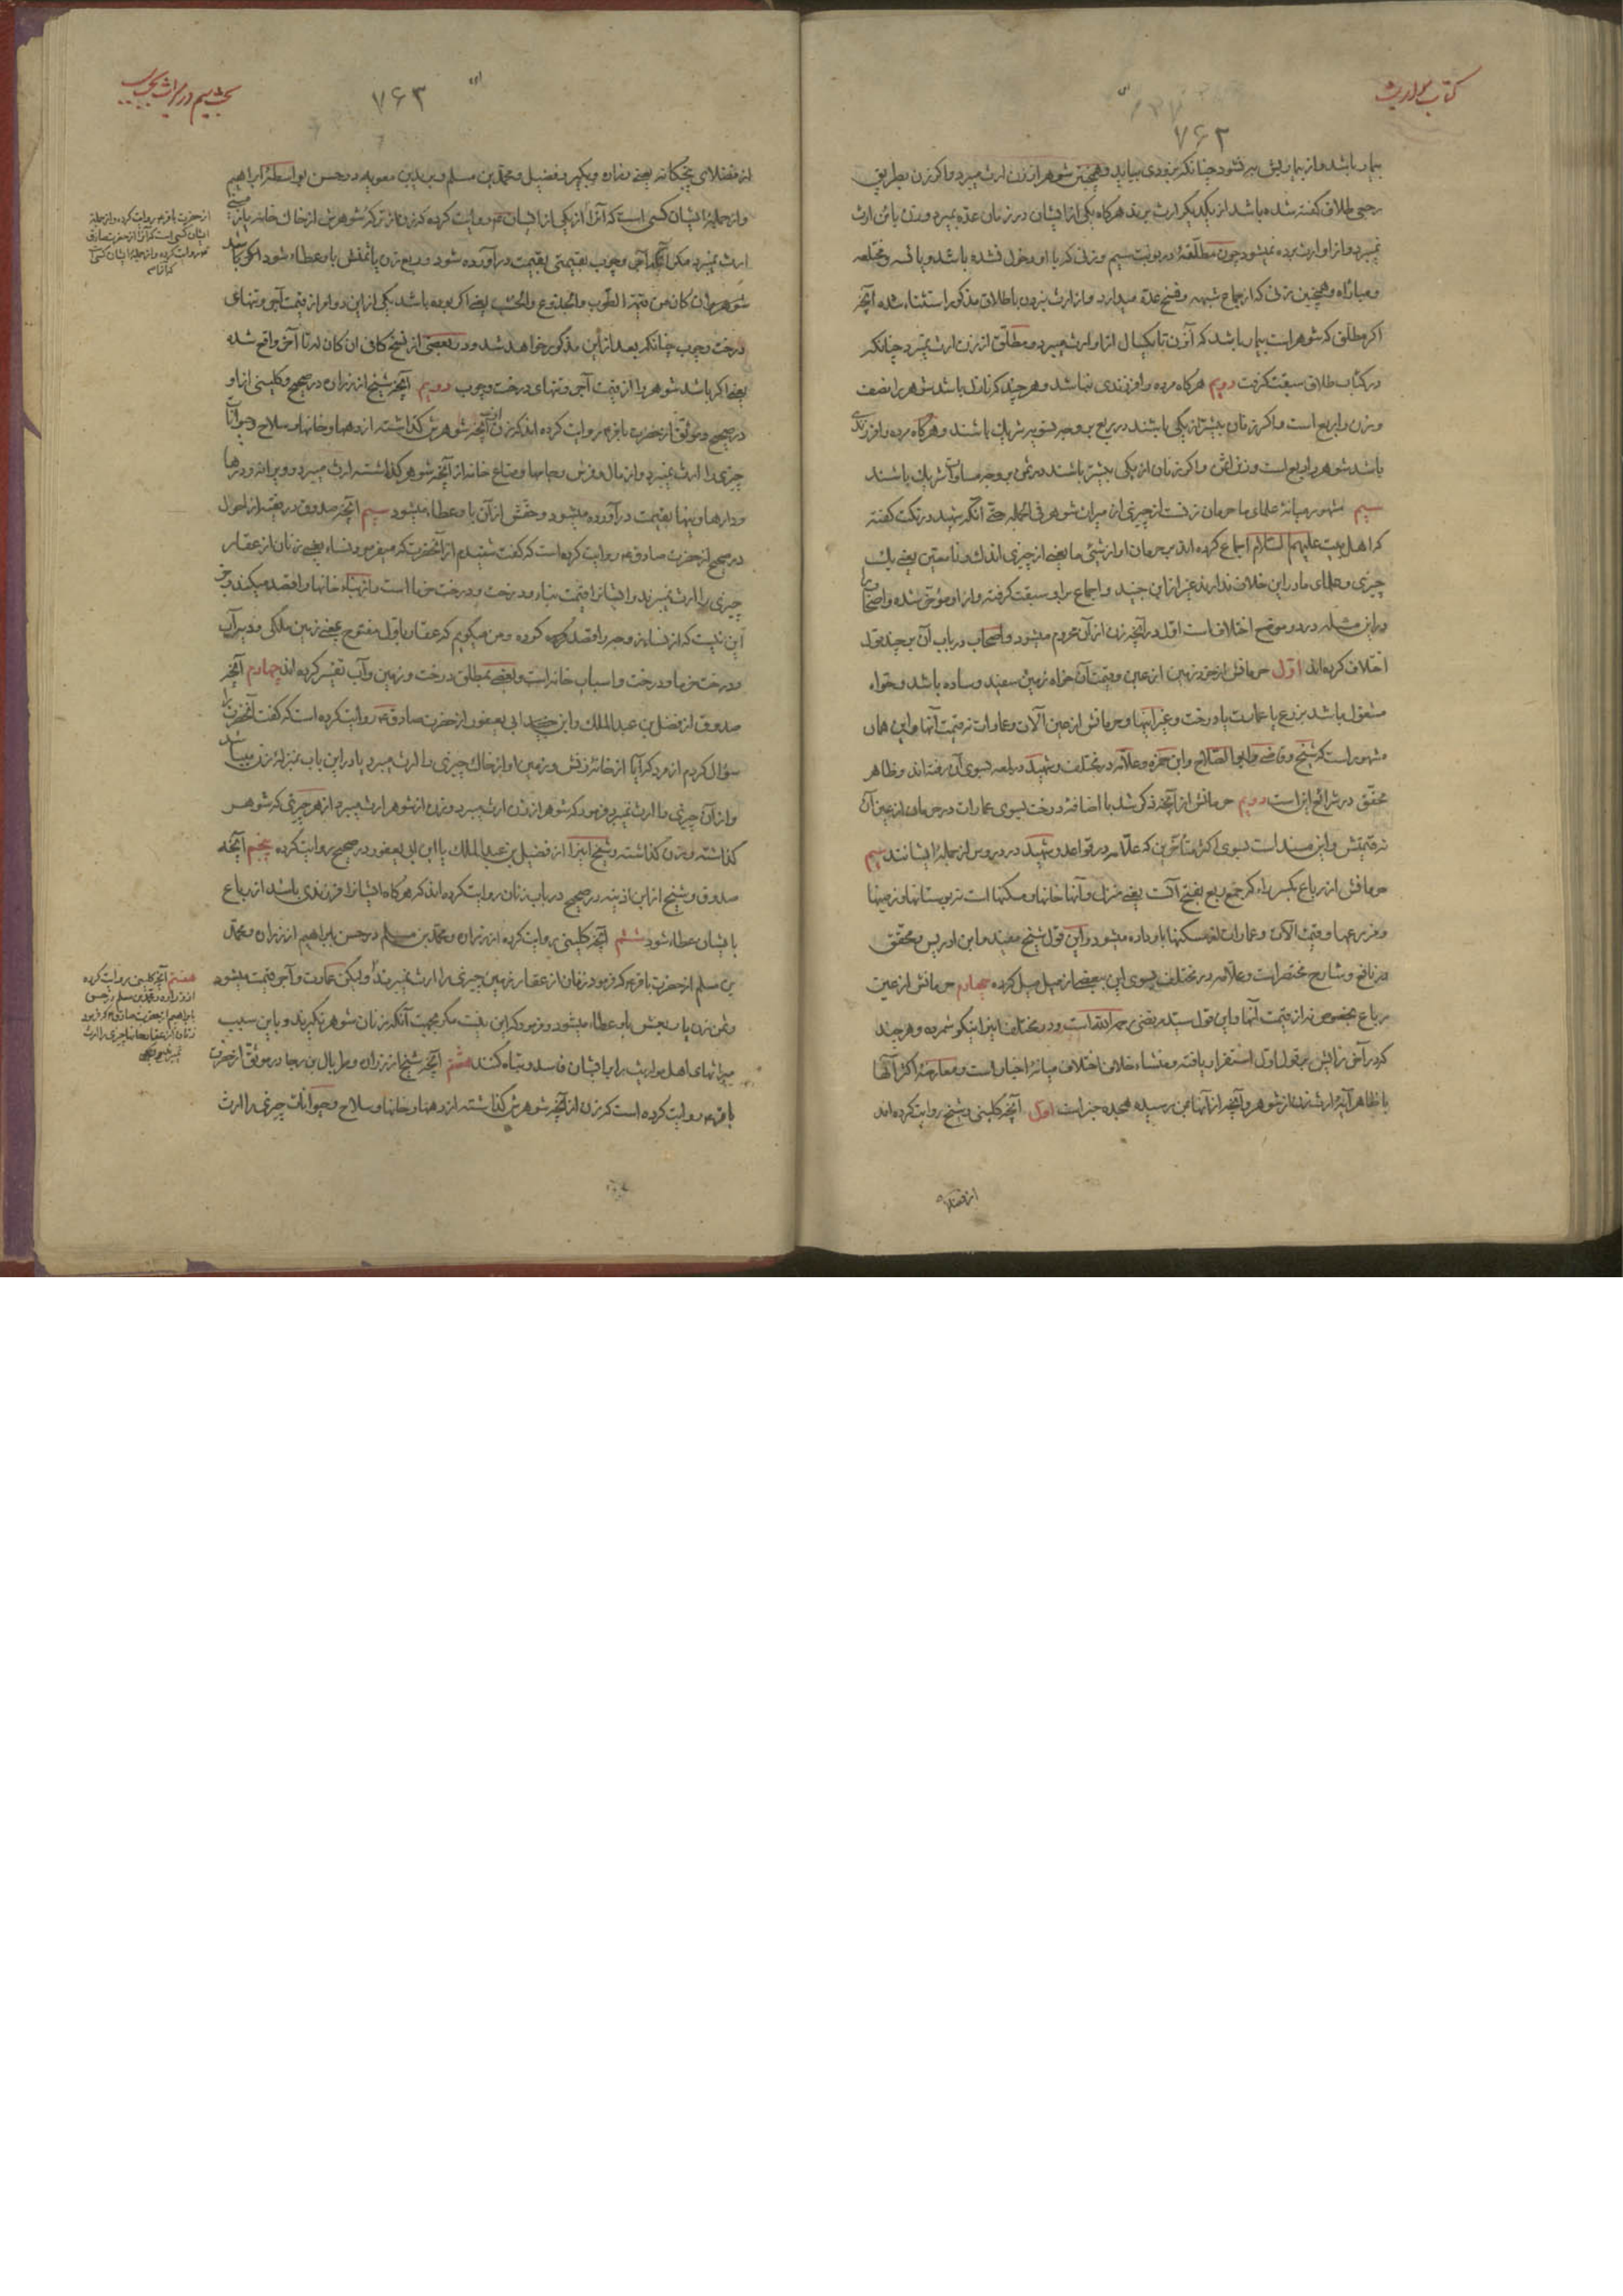 کتاب مواریث
۷۶۲
بیمار باشد و از بیماریش به نشود چنانکه بزودی بیاید و همچنین شوهر از زن ارث میبرد و اگر زن بطریق
رجعی طلاق گفته شده باشد از یکدیگر ارث برند هرگاه یکی از ایشان در زمان عده بمیرد و زن بائن ارث
نمیبرد و از او ارث برده نمیشود چون مطلّقهٔ در نوبت سیم و زنی که با او دخول نشده باشد و یائسه و مختلعه
و مباراه و همچنین زنی که از جماع شبهه و فسخ عدّه میدارد و از ارث نبردن با طلاق مذکور استثناء شده آنچه
اگر مطلّق که شوهر است بیمار باشد که آن زن تا یکسال از او ارث میبرد و مطلّق از زن ارث نمیبرد چنانکه
در کتاب طلاق سبقت گرفت دویم هرگاه مرده را فرزندی نباشد و هر چند که نازل باشد شوهر را نصف
و زن را ربع است و اگر زنان بیشتر از یکی باشند در ربع بر وجه تسویه شریک باشند و هرگاه مرده را فرزندی
باشد شوهر را ربع است و زن را ثمن و اگر زنان از یکی بیشتر باشند در ثمن بر وجه مساوات شریک باشند
سیم مشهور میانهٔ علمای ما حرمان زنست از چیزی از میراث شوهر فی الجمله حتّی آنکه سید در نکت گفته
که اهل بیت علیهم السّلام اجماع کرده اند بر حرمان او از شیئی ما یعنی از چیزی اندک و نامعیّن یعنی یک
چیزی و علمای ما در این خلاف ندارند غیر از ابن جنید و اجماع بر او سبقت گرفته و از او مؤخّر شده و اصحاب را
در این مسئله در دو موضع اختلاف است اوّل در آنچه زن از آن محروم میشود و اصحاب در باب آن بر چند قول
اختلاف کرده اند اوّل حرمانش از خود زمین از عین و قیمت آن خواه زمین سفید و ساده باشد و خواه
مشغول باشد بزرع یا عمارت یا درخت و غیر اینها و حرمانش از عین آلات و عمارات نه قیمت آنها و این همان
مشهور است که شیخ و قاضی و ابو الصّلاح و ابن حمزه و علّامه در مختلف و شهید در لمعه بسوی آن رفته اند و ظاهر
محقّق در شرائع اینست دویم حرمانش از آنچه ذکر شد با اضافهٔ درخت بسوی عمارات در حرمان از عین آن
نه قیمتش و این مسند است بسوی اکثر متأخّرین که علّامه در قواعد و شهید در دروس از جملهٔ ایشانند سیم
حرمانش از رباع بکسر راء که جمع ربع بفتح آنست یعنی منزل و آنها خانها و مسکنها است نه بوستانها و زمینها
و مزرعها و قیمت آلات و عمارات از مسکنها باو داده میشود و این قول شیخ مفید و ابن ادریس و محقّق
در نافع و شارح مختصر است و علّامه در مختلف بسوی این بعضی از میل میل کرده چهارم حرمانش از عین
رباع بخصوص نه از قیمت آنها و این قول سید مرتضی رحمه الله است و در مختلف این را نیکو شمرده و هر چند
که در آخر رایش بر قول اول استقرار یافته و منشاء خلاف اختلاف میانهٔ اخبار است و معارضهٔ اکثر آنها
با ظاهر آیهٔ ارث زن از شوهر و آنچه از آنها بمن رسیده هجده خبر است اوّل آنچه کلینی و شیخ روایت کرده اند
از فضلای
بحث سیم در میراث بسبب
۷۶۳
از فضلای پنجگانه یعنی زراره و بکیر و فضیل و محمّد بن مسلم و برید بن معویه در حسن بواسطهٔ ابراهیم
و از جملهٔ ایشان کسی است که آن را از یکی از ایشان روایت کرده که زن از ترکهٔ شوهرش از خاک خانه یا زمینی
ارث نمیبرد مگر آنکه آجر و چوب بقیمتی بقیمت درآورده شود و ربع زن یا ثمنش باو عطاء شود اگر باشد
شوهر را ان کان من قیمة الطّوب و الجذوع و الخشب یعنی اگر بوده باشد یکی از این دو او را از قیمت آجر و تنهای
درخت و چوب چنانکه بعد از این مذکور خواهد شد و در بعضی از نسخ کافی ان کان له تا آخر واقع شده
یعنی اگر باشد شوهر را از قیمت آجر و تنهای درخت و چوب دویم آنچه شیخ از زراره در صحیح و کلینی از او
در صحیح و موثّق از حضرت باقر ع روایت کرده اند که زن از آنچه شوهرش گذاشته از دهها و خانها و سلاح و حیوانات
چیزی را ارث نمیبرد و از مال و فرش و جامها و متاع خانه از آنچه شوهر گذاشته ارث میبرد و ویرانه و درها
و دارها و نیها بقیمت درآورده میشود و حقّش از آن باو عطاء میشود سیم آنچه صدوق در فقیه از احول
در صحیح از حضرت صادق ع روایت کرده است که گفت شنیدم از آنحضرت که میفرمود نساء یعنی زنان از عقار
چیزی را ارث نمیبرند و ایشان را قیمت بناء و درخت و درخت خرما است و از بناء خانها را قصد میکند و جز
این نیست که از نساء زوجه را قصد کرده و من میگویم که عقار باوّل مفتوح بمعنی زمین ملکی و دیر آب
و درخت خرما و درخت و اسباب خانه است و بعضی بمطلق درخت و زمین و آب تفسیر کرده اند چهارم آنچه
صدوق از فضل بن عبد الملک و ابن ابی یعفور از حضرت صادق ع روایت کرده است که گفت آنحضرت را
سؤال کردم از مرد که آیا از خانهٔ زنش و زمین او از خاک چیزی را ارث میبرد یا در این باب بمنزلهٔ زن میباشد
و از آن چیزی را ارث نمیبرد فرمود که شوهر از زن ارث میبرد و زن از شوهر ارث میبرد از هر چیزی که شوهر
گذاشته و زن گذاشته و شیخ این را از فضیل بن عبد الملک یا ابن ابی یعفور در صحیح روایت کرده پنجم آنچه
صدوق و شیخ از ابن اذینه در صحیح در باب زنان روایت کرده اند که هرگاه ایشان را فرزندی باشد از رباع
بایشان عطاء شود ششم آنچه کلینی روایت کرده از زراره و محمّد بن مسلم در حسن بابراهیم از زراره و محمّد
بن مسلم از حضرت باقر ع که فرمود زنان از عقار زمین چیزی را ارث نمیبرند و لیکن عمارت و آجر قیمت میشود
و ثمن زن یا ربعش باو عطاء میشود و فرمود که این نیست مگر بجهت آنکه زنان شوهر نگیرند و باین سبب
میراثهای اهل مواریث را بر ایشان فاسد و تباه کنند هشتم آنچه شیخ از زراره و طربال بن رجا در موثّق از حضرت
باقر ع روایت کرده است که زن از آنچه شوهرش گذاشته از دهها و خانها و سلاح و حیوانات چیزی را ارث
از حضرت باقر ع روایت کرده و از جملهٔ
ایشان کسی است که آن را از حضرت صادق
ع روایت کرده و از جملهٔ ایشان کسی
هفتم آنچه کلینی روایت کرده
از زراره و محمّد بن مسلم در حسن
بابراهیم از حضرت صادق ع که فرمود
زنان از عقار خانها چیزی را ارث